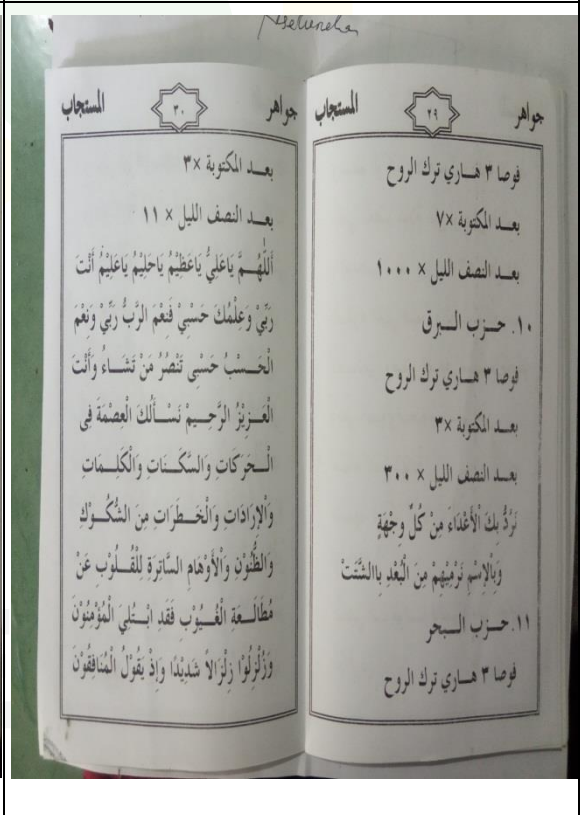 جواهر ٢٩ المستجاب
فوصا ٣ هـاري ترك الروح
بعـد المكتوبة ×٧
بعـد النصف الليل × ١٠٠٠
١٠. حـزب الـبرق
فوصا ٣ هـاري ترك الروح
بعـد المكتوبة ×٣
بعـد النصف الليل × ٣٠٠
نَرُدُّ بِكَ الْأَعْدَاءَ مِنْ كُلِّ وِجْهَةٍ
وَبِالْاِسْمِ نَرْمِيْهِمْ مِنَ الْبُعْدِ بِاالشَّتَتْ
١١. حـزب الـبحر
فوصا ٣ هـاري ترك الروح
جواهر ٣٠ المستجاب
بعـد المكتوبة ×٣
بعـد النصف الليل × ١١
اَللّٰهُـمَّ يَاعَلِيُّ يَاعَظِيْمُ يَاحَلِيْمُ يَاعَلِيْمُ أَنْتَ
رَبِّيْ وَعِلْمُكَ حَسْبِيْ فَنِعْمَ الرَّبُّ رَبِّيْ وَنِعْمَ
الْحَـسْبُ حَسْبِى تَنْصُرُ مَنْ تَشَـاءُ وَأَنْتَ
الْعَـزِيْزُ الرَّحِـيْمُ نَسْـأَلُكَ الْعِصْمَةَ فِى
الْـحَرَكَاتِ وَالسَّكَـنَاتِ وَالْكَلِـمَاتِ
وَالْاِرَادَاتِ وَالْخَـطَرَاتِ مِنَ الشُّكُـوْكِ
وَالظُّنُوْنِ وَالْأَوْهَامِ السَّاتِرَةِ لِلْقُـلُوْبِ عَنْ
مُطَالَـعَةِ الْغُـيُوْبِ فَقَدِ ابْـتُلِيَ الْمُؤْمِنُوْنَ
وَزُلْزِلُوْا زِلْزَالاً شَدِيْدًا وَاِذْ يَقُوْلُ الْمُنَافِقُوْنَ